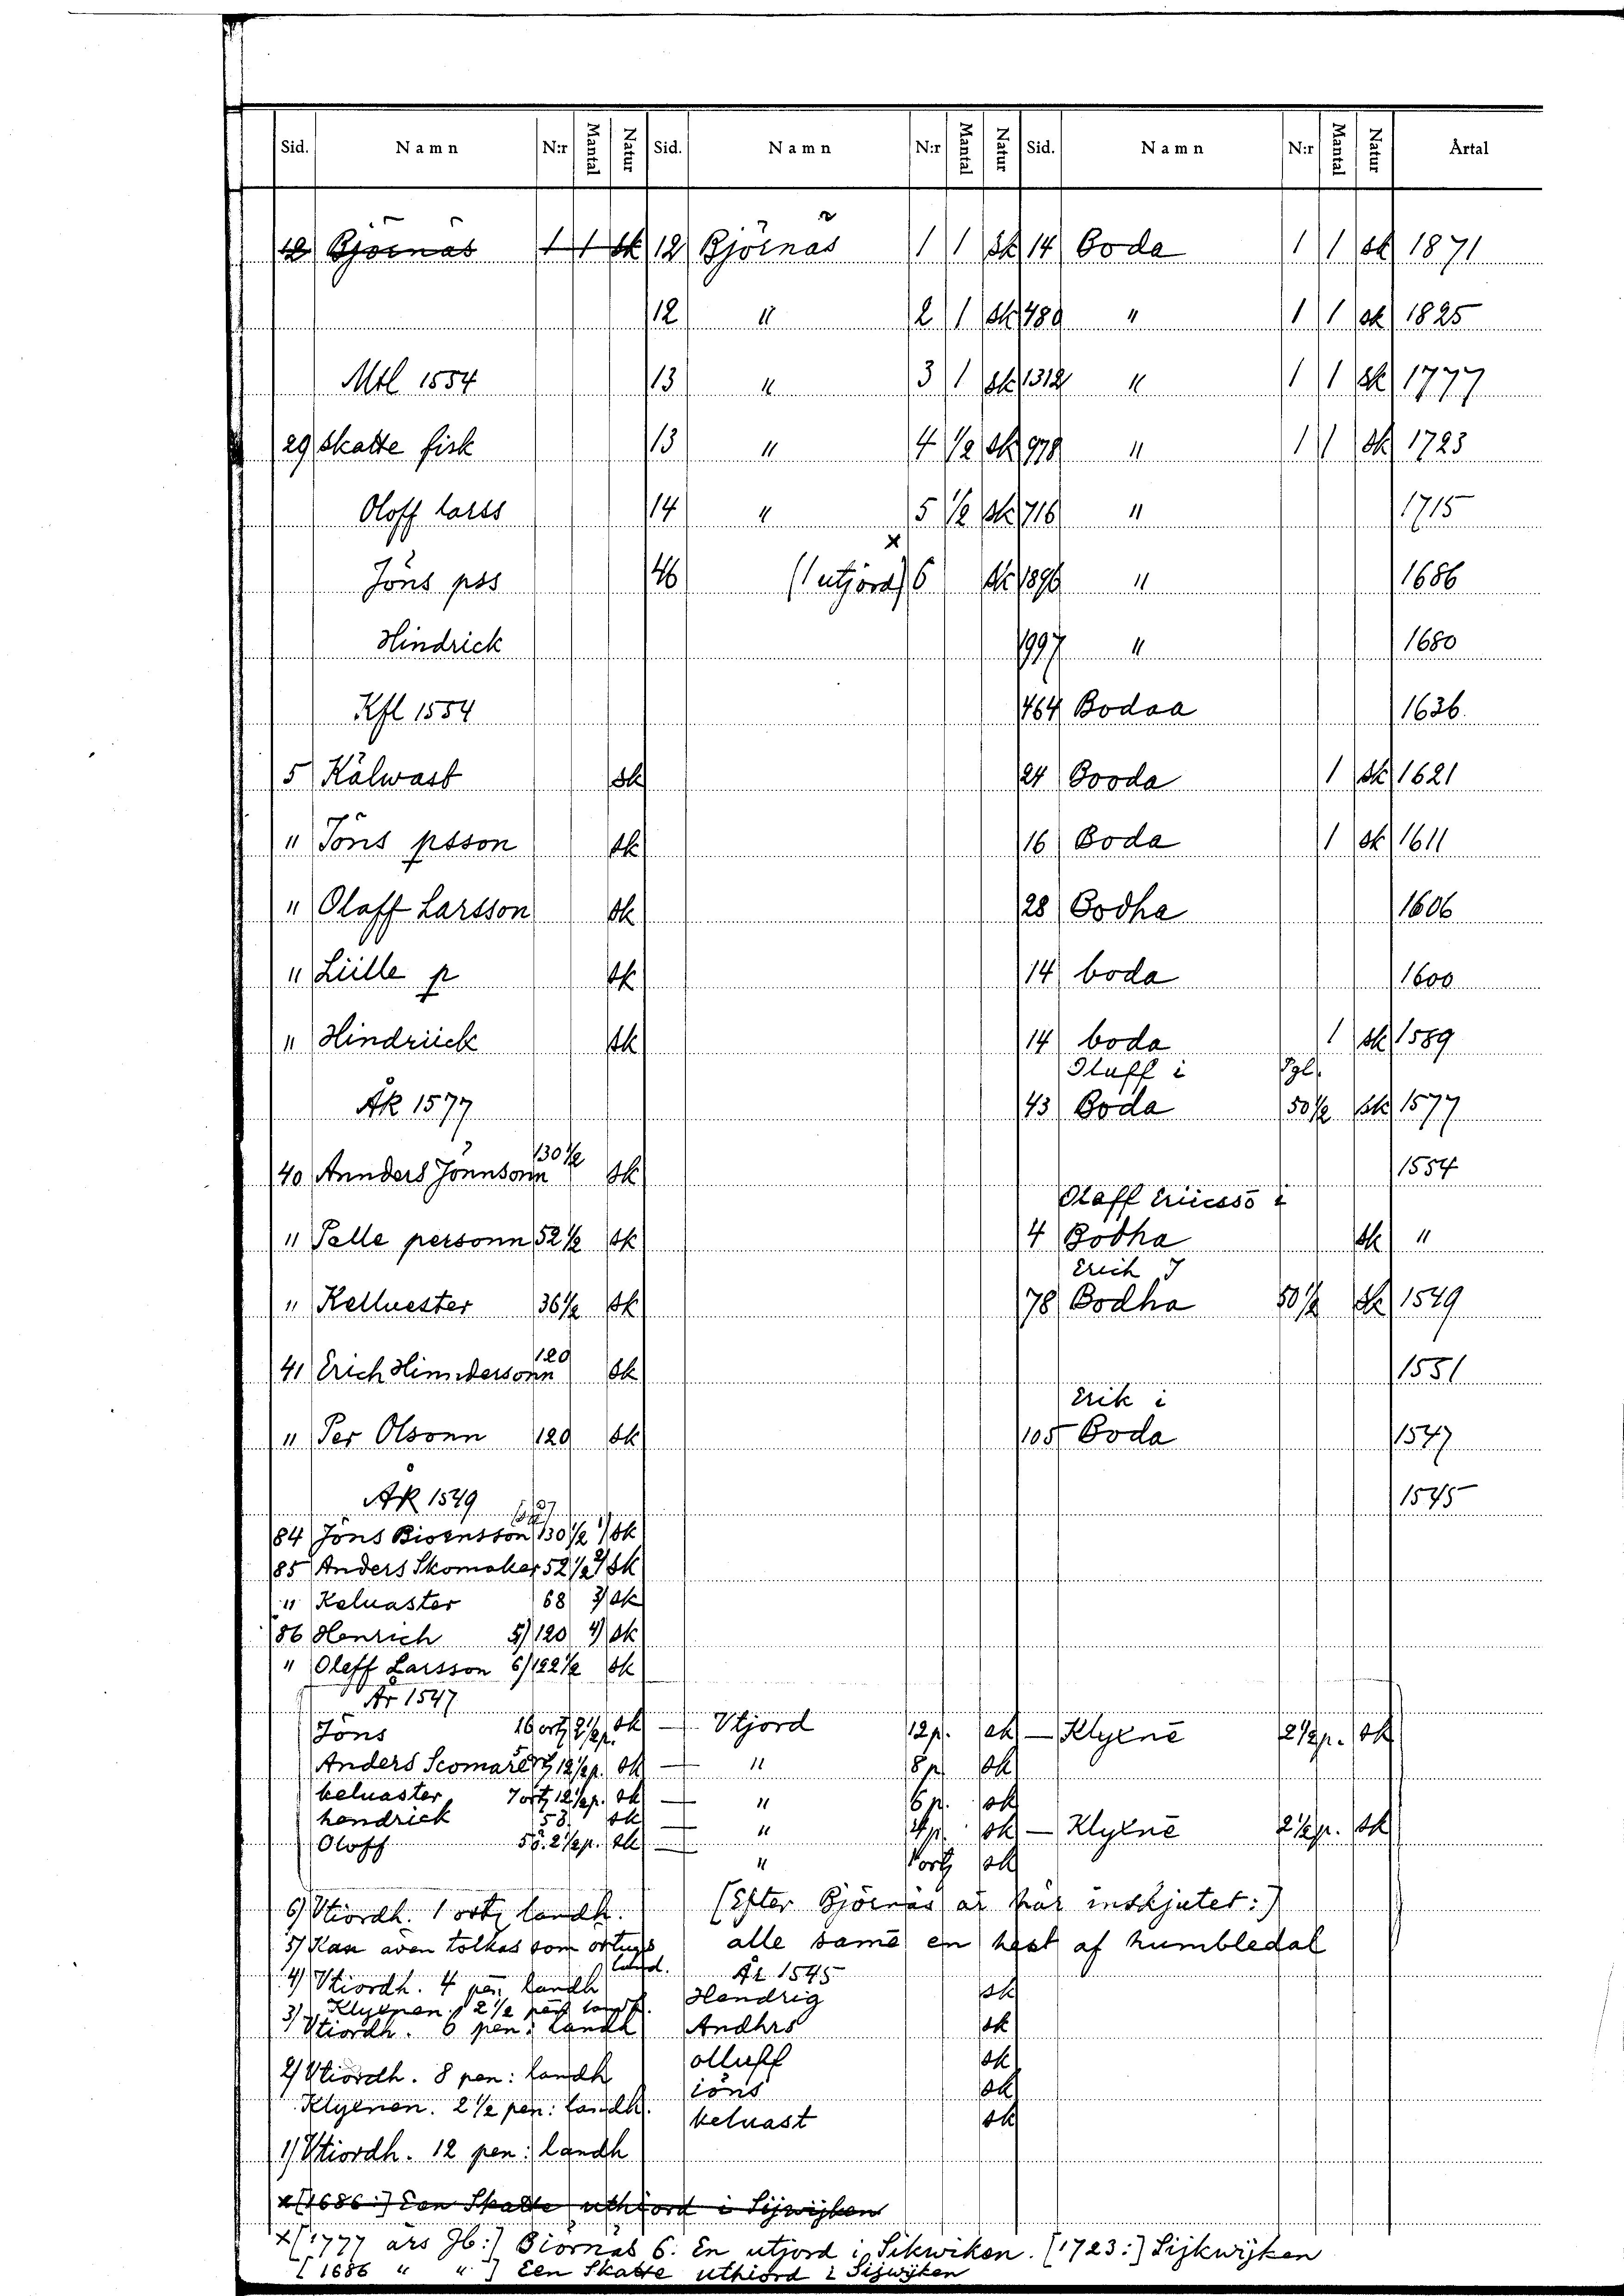 Sid. Namn N:r Mantal Natur Sid. Namn N:r Mantal Natur Sid. Namn N:r Mantal Natur Årtal
12 Björnäs 1 1 sk 12 Björnäs 1 1 sk 14 Boda 1 1 sk 1871
12 " 2 1 sk 489 " 1 1 sk 1825
Mtl 1554 13 " 3 1 sk 1312 " 1 1 sk 1777
29 skatte fisk 13 " 4 1/2 sk 978 " 1 1 sk 1723
Oloff larss 14 " 5 1/2 sk 716 " 1715
Jöns pss 46 (1 utjord) x 6 sk 1896 " 1686
Hindrick 1997 " 1680
Kfl 1554 464 Bodaa 1636
5 Kälwast sk 24 Booda 1 sk 1621
" Jöns psson sk 16 Boda 1 sk 1611
" Olaff Larsson sk 28 Bodha 1606
" Lülle p sk 14 boda 1600
" Hindrück sk 14 boda 1 sk 1589
Oluff i Pgl.
ÅK 1577 43 Boda 50 1/2 sk 1577
40 Annders Jönnsonn 130 1/2 sk 1554
Olaff Ericssō i
" Palle personn 52 1/2 sk 4 Bodha sk "
Erich J
" Kelluester 36 1/2 sk 78 Bodha 50 1/2 sk 1549
41 Erich Hinndersonn 120 sk 1551
Erik i
" Per Olsonn 120 sk 105 Boda 1547
ÅK 1549 1545
84 Jöns Biornsson 130 1/2 1) sk
85 Anders Skomaker 52 1/2 2) sk
" Keluaster 68 3) sk
86 Henrich 5) 120 4) sk
" Oleff Larsson 6) 122 1/2 sk
År 1547
Jöns 16 ort 2 1/2 p. sk — Vtjord 12 p. sk — Klyxne 2 1/2 p. sk
Anders Scomare 12 1/2 p. sk — " 8 p sk
keluaster 7 ort 12 1/2 p. sk — " 6 p. sk
hendrick 5 ö. sk — " 4 p. sk — Klyxne 2 1/2 p. sk
Oloff 5 ö. 2 1/2 p. sk — " 1 ort sk
6) Vtiordh. 1 ort landh. (Efter Björnäs är här inskjutet:)
5) Kan även tolkas som ortugs land. alle samē en hest af humbledal
4) Vtiordh. 4 pen landh År 1545
Klyxnen 2 1/2 pen landh. Hendrig sk
3) Vtiordh. 6 pen: landh Andhrs sk
2) Vtiordh. 8 pen: landh olluff sk
iöns sk
Klyxnen. 2 1/2 pen: landh. keluast sk
1) Vtiordh. 12 pen: landh
x [1686:] Een Skatte uthiord i Sijwijken
x [1777 års Jb:] Biörnäs 6. En utjord i Sikwiken. [1723:] Sijkwijken
[1686 " "] Een Skatte uthiord i Sijwijken